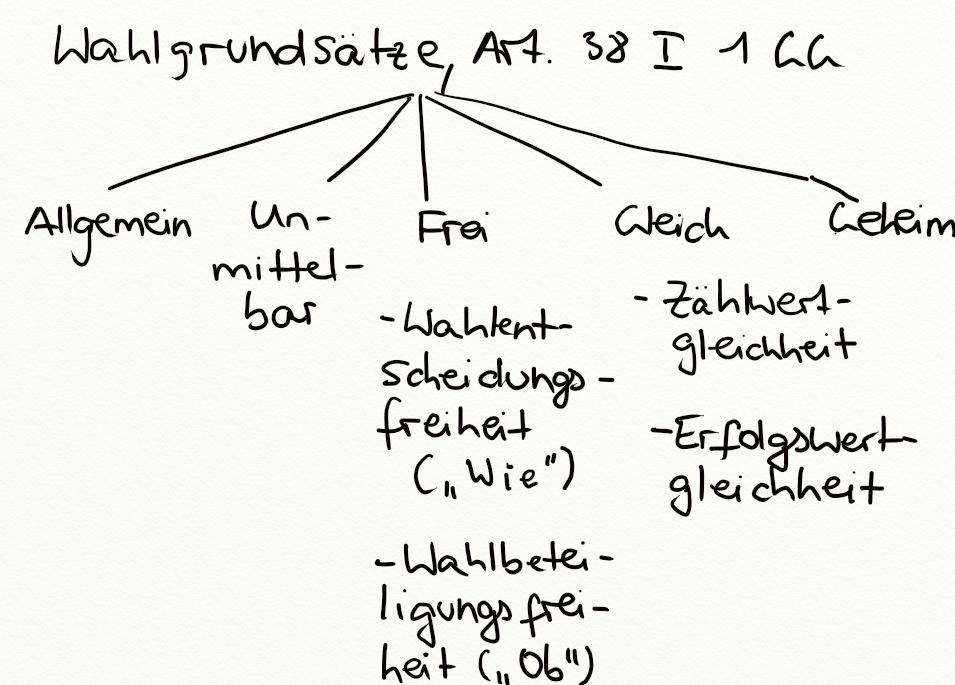 Wahlgrundsätze, Art. 38 I 1 GG
Allgemein
Un-
mittel-
bar
Frei
- Wahlent-
scheidungs-
freiheit
(„Wie")
- Wahlbetei-
ligungsfrei-
heit („Ob")
Gleich
- Zählwert-
gleichheit
- Erfolgswert-
gleichheit
Geheim